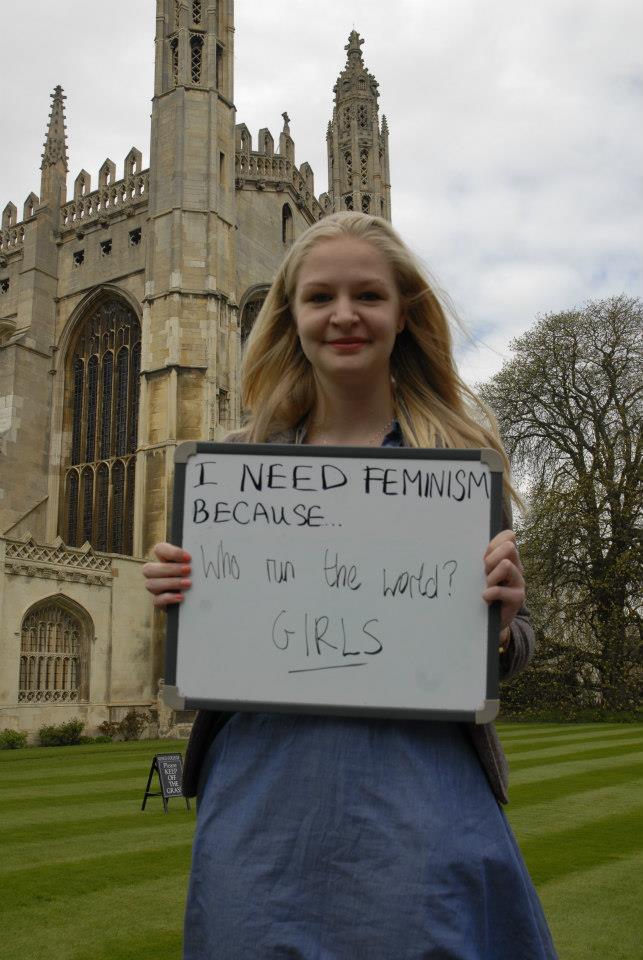 I NEED FEMINISM
BECAUSE...
Who run the world?
GIRLS
KING'S COLLEGE
Please
KEEP
OFF
THE
GRASS